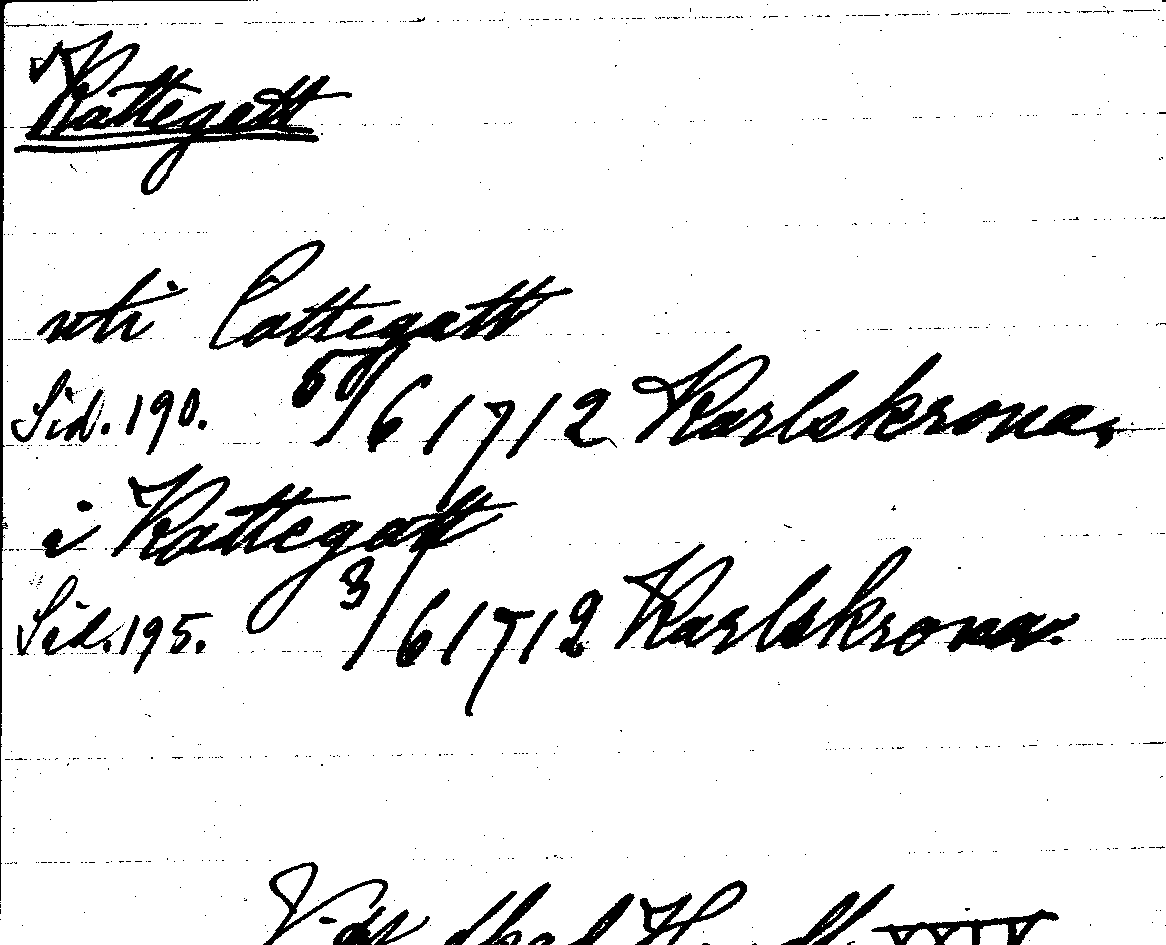 Kattegatt
uti Cattegatt
Sid. 190. /6 1712 Karlskrona.
i Kattegatt
Sid. 195. 3/6 1712 Karlskrona.